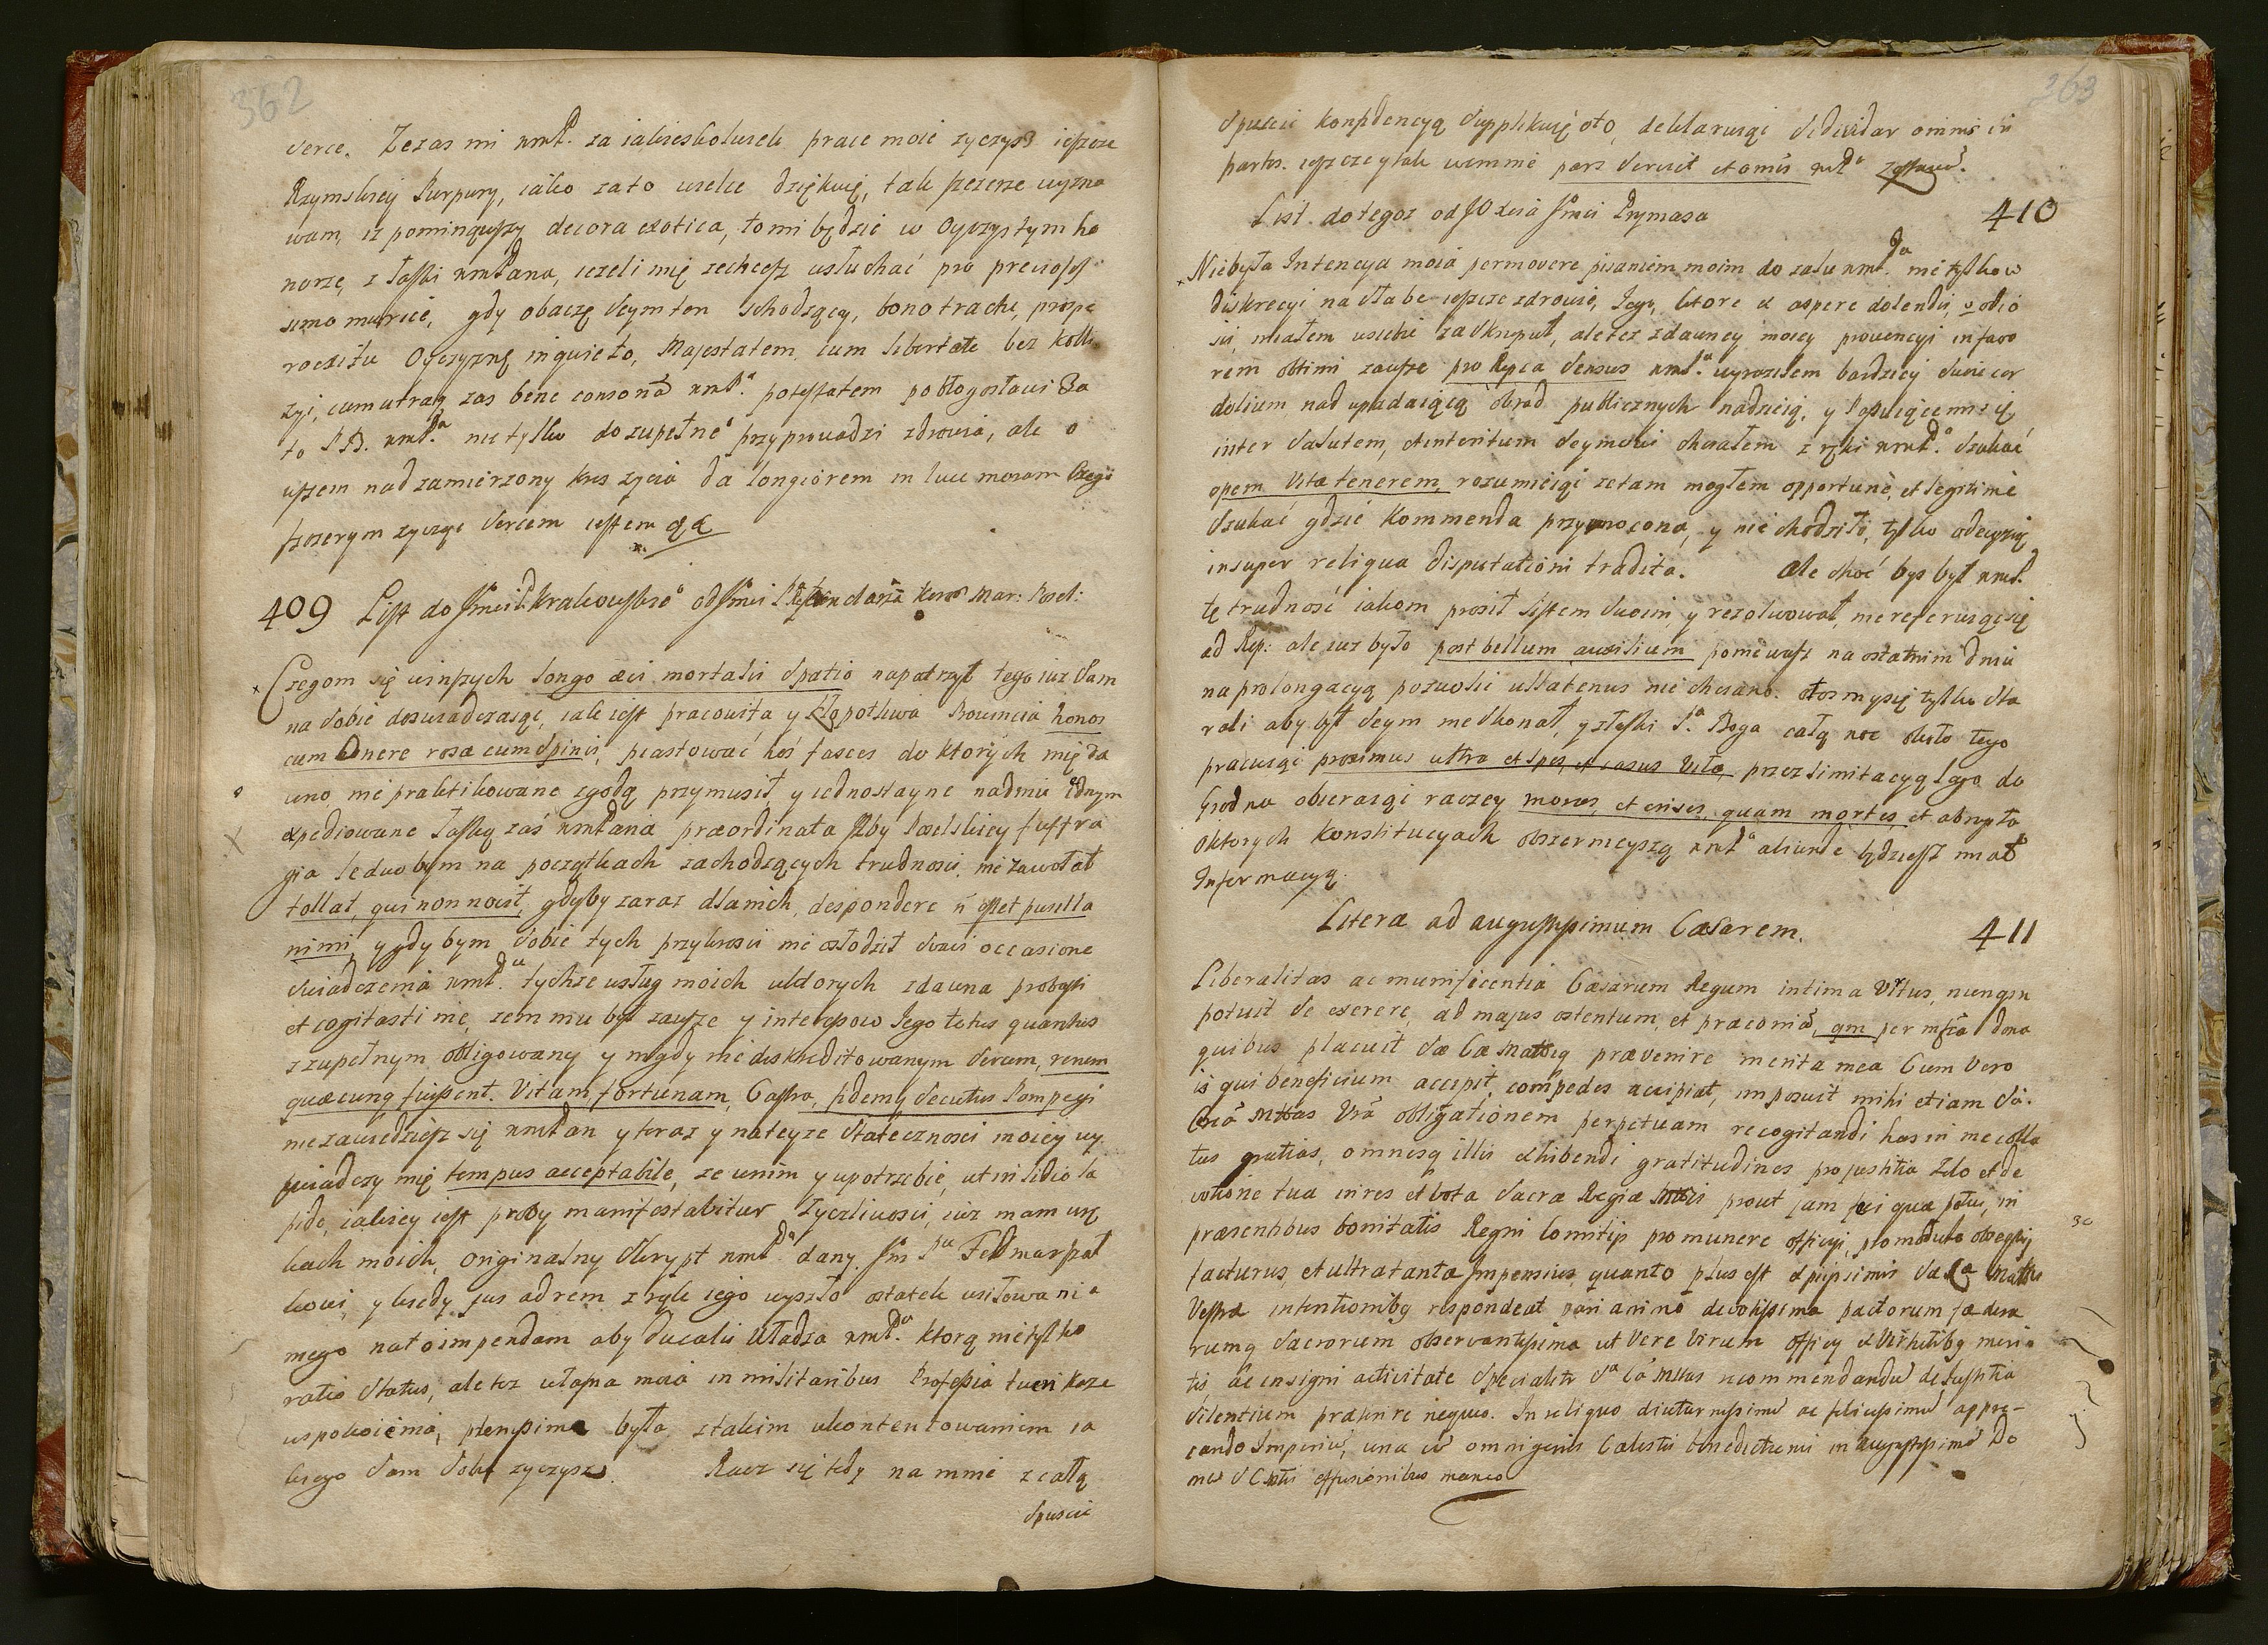 362
serce. Zezas mi wmP. za iakieskolwiek prace moie zyczysz ieszcze
Rzymskiey Purpury, iako zato wielce dziękuię, tak szczerze wyzna
wam, iz pominąwszy decora exotica, to mi będzie w Oyczystym ho
norze, z łaski wmPana, iezeli mię zechcesz usłuchać pro preciosis
simo murice, gdy obaczę Seym ten schodzący, bono
Oyczyznę in quieto, Majestatem cum libertate bez kolli
zyi, cum utraq zas bene consonā wmPa potestatem pobłogosławi Za
to P.B. wmPa nie tylko do zupełneo przyprowadzi zdrowia, ale o
wszem nad zamierzony kres zycia da longiorem in luce moram Czego
szczerym zycząc sercem iestem
409 List do Jmci P. Krakowskieo od Jmci Mar: Posel:
Czegom się w inszych longo ævi mortalis spatio napatrzył tego iuz sam
na sobie doswiadczaiąc, iak iest pracowita y kłopotliwa Prowincia honor
cum onere rosa cum spinis, piastować fasces do ktorych mię da
wno nie praktikowane zgodą przymusił, y iednostayne na dniu iednym
expediowane łaską zaś wmPana præordinata Izby Poselskiey suffra
gia ledwo bym na początkach zachodzących trudnosci, nie zawołał
tollat, qui non novit, gdyby zaraz dla nich, despondere ñ esset pusilla
nimi, y gdy bym sobie tych przykrosci nie osłodził
swiadczenia wmPa tychze usług moich w ktorych zdawna probasti
et cogitasti me, zem mu był zawsze y interessow Jego totus quantus
z zupełnym obligowany y nigdy nie diskreditowanym sercem, rerum
quæcunq fuissent. Vitam, fortunam, Castra, fidemq secutus Pompeji
nie zawiedziesz się wmPan y teraz y na teyze statecznosci moiey wy
swiadczy mię tempus acceptabile, ze umim y upotrzebie, ut in lidio la
pide, iakiey iest proby manifestabitur zyczliwosci, iuz mam w rę
kach moich, originalny skrypt wmPa dany Jm Pu Feldmarszał
kowi, y kiedy jus ad rem z ręk iego wyszło ostatek usiłowania
mego na to impendam aby ducalis władza wmPa ktorą nie tylko
ratio Status, ale tez własna moia in militaribus Professia tueri kaze
uspokoienia, plenissima była, z takim ukontentowaniem ia
kiego sam sobie zyczysz. Racz się tedy na mnie z całą
spuscic
263
spuscic konfidencyą supplikuię oto, deklaruiąc dividar omnis in
partes. ieszcze y tak wemnie pars serviet et omnis wmPa zostawać.
List do tegoz od JO Xcia Jmci Prymasa 410
Niebyła Intencya moia permovere pisaniem moim do zalu wmPa nie tylko w
diskrecyi na słabe ieszcze zdrowie, Jego, ktore et aspere dolendis,
miałem u siebie za skrupuł, ale tez z dawney moiey prowencyi in favo
rem obtimi zawsze pro Repca sensus wmPa wyraziłem bardziey swoie cor
dolium nad upadaiącą obrad publicznych nadzieią, y
inter salutem, et interitum Seymowi chciałem z ręki wmPa szukać
opem Vitæ tenerem, rozumieiąc ze tam mogłem opportunè, et legitimè
szukać gdzie Kommenda przywrocona, y nie chodziło, tylko o decyzią
insuper reliqua disputationi tradita. Ale choć bys był wmP.
tę trudność iakom prosił listem swoim y rezolwował, nie referuiąc się
ad Rep: ale iuz było post bellum auxilium poniewasz na ostatnim dniu
na prolongacyą pozwolic ullatenus nie chciano. otosmy się tylko sta
rali aby był Seym nie skonał, y z łaski Pa Boga całą noc około tego
pracuiąc proximus ultra et spes, et casus Vitæ przez limitacyą Jego do
Grodna obieraiąc raczey moras, et crises, quam mortes, et abrupta
O ktorych Konstitucyach obszernieyszą wmPa aliunde będziesz miał
Informacyą.
Literæ ad augustissimum Cæsarem. 411
Liberalitas ac munificentia Cæsarum Regum intima Vrtus, nunqm
potuit se exerere, ad majus ostentum, et præconia, qm per dona
quibus placuit Sæ Cæ Mattiq prævenire merita mea Cum vero
is qui beneficium accipit compedes accipiat, imposuit mihi etiam Sā.
Mttas Vrā obligationem perpetuam recogitandi has in me colla
tas gratias, omnesq illis exhibendi gratitudines pro justitia Zelo et de
votione tua in res et vota Sacræ Regiæ Mttis prout jam feci quæ potui, in
præsentibus bonitatis Regni Comitijs pro munere officij, obsequij
facturus, et ultra tanto Impensius, quanto plus est
Vestræ intentionibq respondeat pari animo devotissima pactorum fædera
rumq sacrorum observantissima ut Vere Virum officij et Virtutibq meri
tis, ac insigni activitate specialiter Sa Cā Mttas recommendandu de Justitia
silentium præterire nequeo. In reliquo diuturnissimū ac felicissimū appre-
cando Imperiū, una cū omnigenis Cælestis benedictionis in augustissimā Do
mū effusionibus maneo